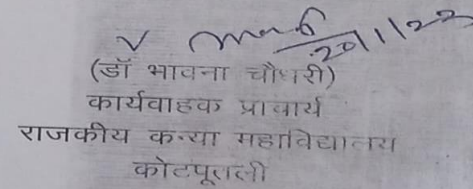 20/1/22
(डॉ भावना चौधरी)
कार्यवाहक प्राचार्य
राजकीय कन्या महाविद्यालय
कोटपूतली